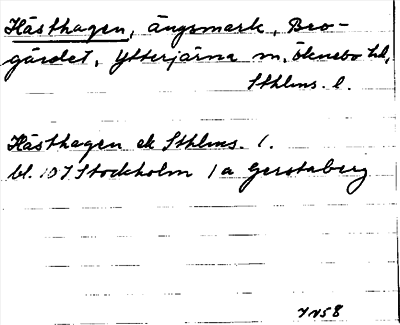 Hästhagen, ängsmark, Bro-
gärdet, Ytterjärna sn, Öknebo hd,
Sthlms. l.
Hästhagen ek Sthlms. l.
bl. 107 Stockholm 1a Gerstaberg